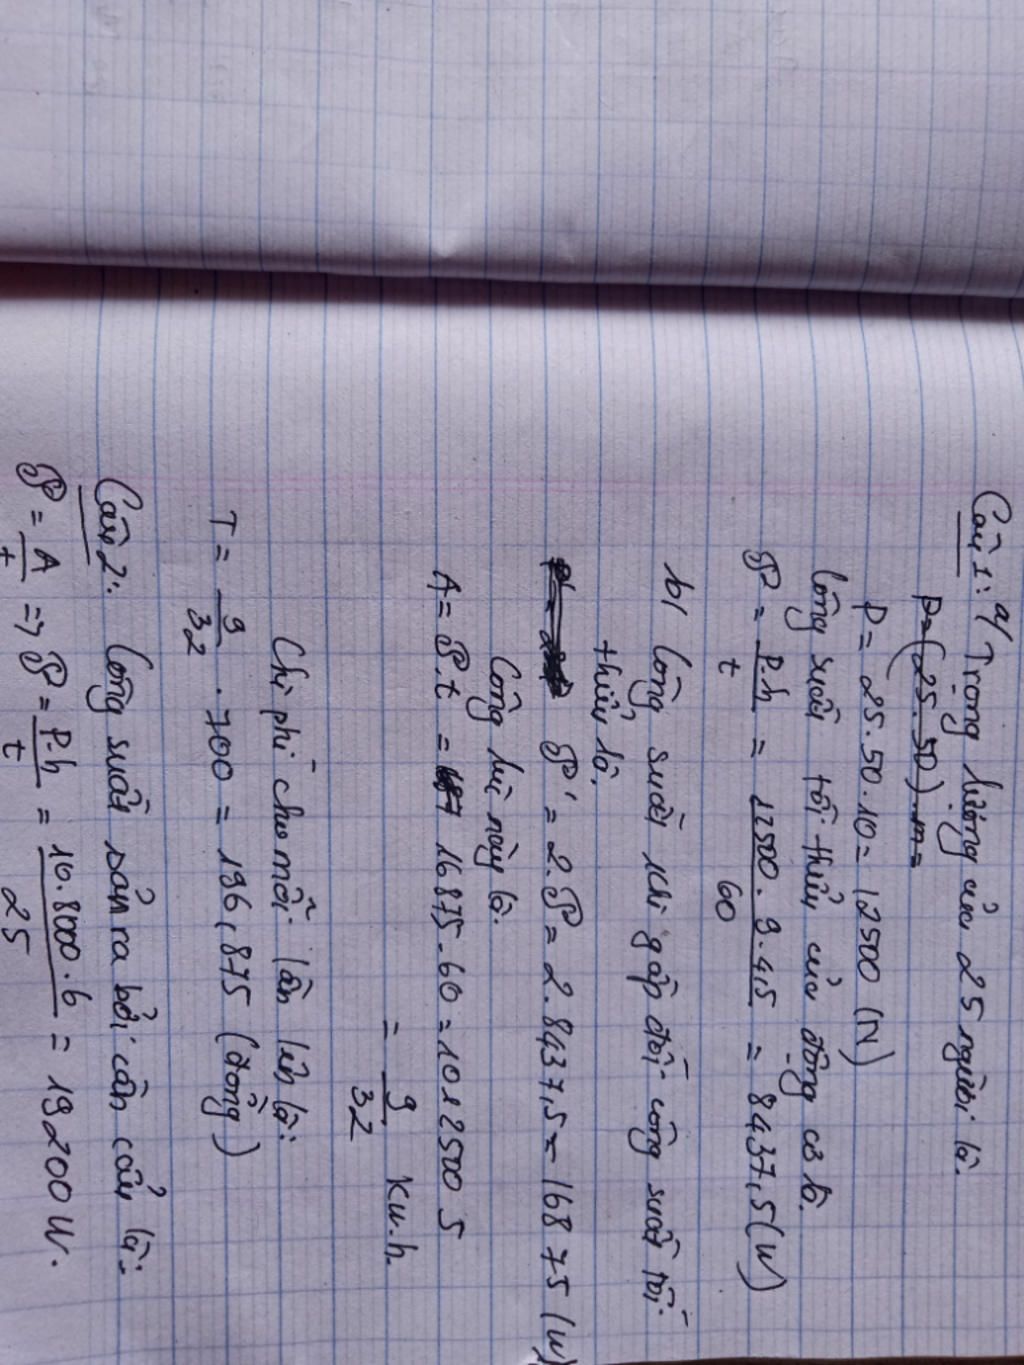 Câu 1: a/ Trọng lượng của 25 người là.
P=(25.50).m=
P= 25.50.10= 12500 (N)
Công suất tối thiểu của động cơ là.
P = P.h/t = 12500.9.4,5/60 = 8437,5(W)
b/ Công suất khi gấp đôi công suất tối
thiểu là.
P' = 2.P = 2.8437,5= 16875 (W)
Công lúc này là.
A= P.t = 16875.60=1012500 J
= 9/32 Kw.h.
Chi phí cho mỗi lần lên là:
T = 9/32 . 700 = 196,875 (đồng)
Câu 2: Công suất sản ra bởi cần cẩu là:
P = A/t => P = P.h/t = 10.8000.6/25 = 19200 W.